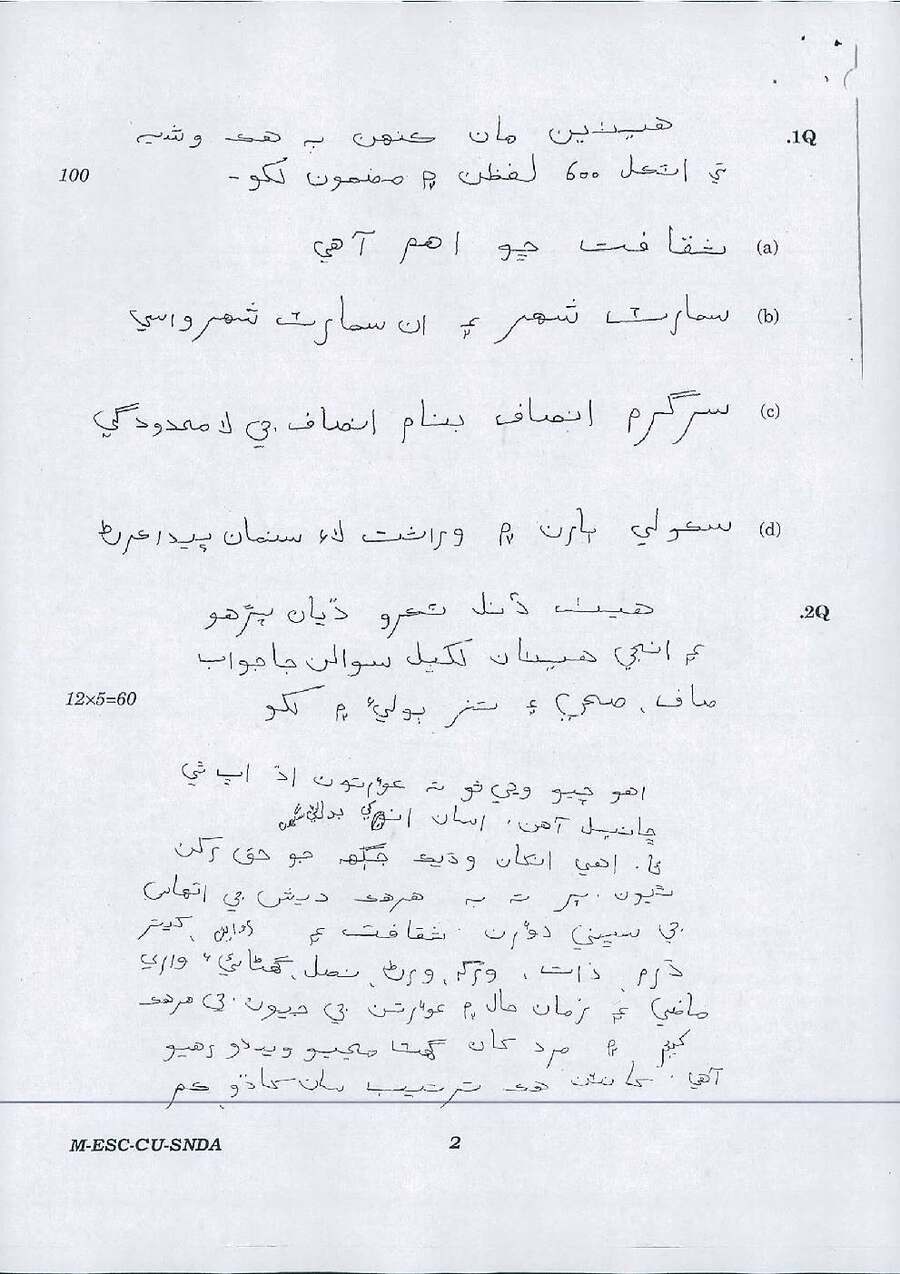 .1Q هيٺين مان ڪنهن به هڪ وشيه
تي اٽڪل 600 لفظن ۾ مضمون لکو - 100
(a) ثقافت ڇو اهم آهي
(b) سمارٽ شهر ۽ ان سمارٽ شهر واسي
(c) سرگرم انصاف بنام انصاف جي لامحدودگي
(d) سڪولي ٻارن ۾ وراثت لاءِ سنمان پيدا ڪرڻ
.2Q هيٺ ڏنل ٽڪرو ڌيان پڙهو
۽ انجي هيٺان لکيل سوالن جا جواب
صاف، صحيح ۽ ٺيز ٻوليءَ ۾ لکو 12×5=60
اهو چيو وڃي ٿو ته عورتون اڌ اپ ٿي
آهن. اسان انهي
اهي انکان وڌيڪ جڳهه جو حق رکن
ٿيون. پر ته به هرهڪ ديش جي اتهاس
جي سڀني دؤرن ثقافت ۽
ڌرم ذات، ورگ، ورڻ، نصل، واري
ماضي ۽ زمان حال ۾ عورتن جي جيون جي هرهڪ
۾ مرد کان گهٽ سمجهيو ويندو رهيو
آهي. هڪ ترتيب سان ڪم
M-ESC-CU-SNDA 2